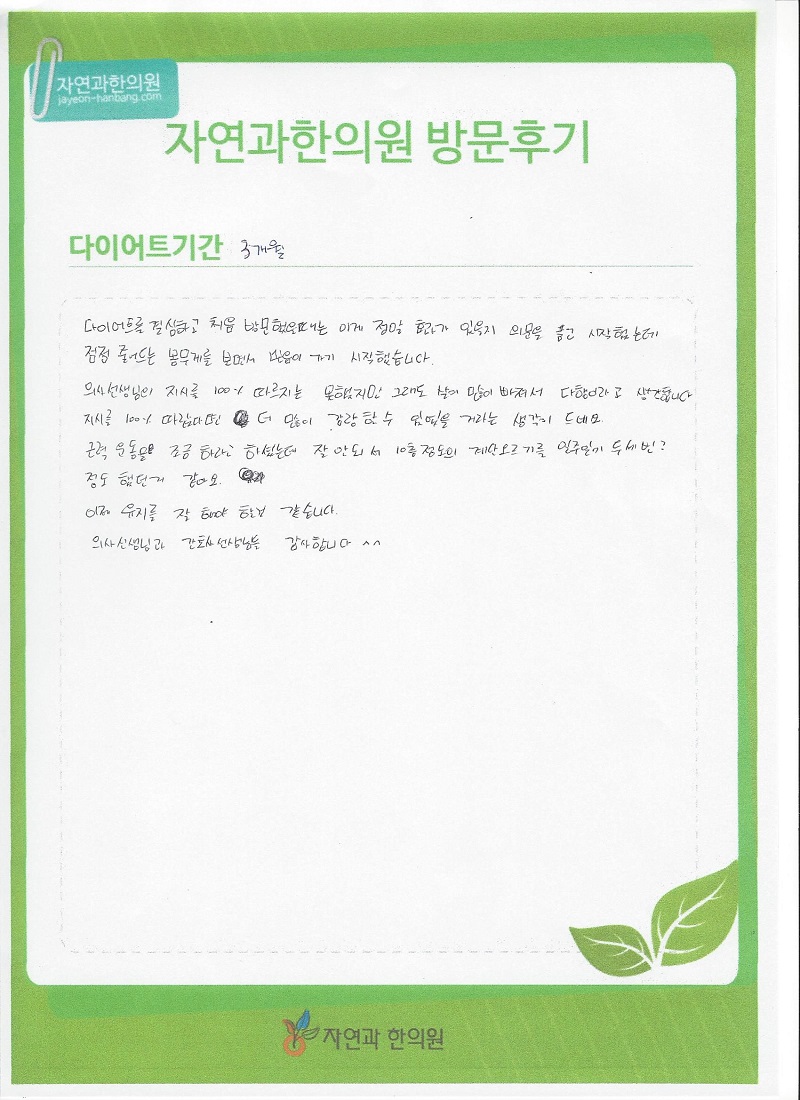 자연과한의원
jayeon-hanbang.com
자연과한의원 방문후기
다이어트기간 3개월
다이어트를 결심하고 처음 방문했을때는 이게 정말 효과가 있을지 의문을 품고 시작했는데
점점 줄어드는 몸무게를 보면서 믿음이 가기 시작했습니다.
의사선생님의 지시를 100% 따르지는 못했지만 그래도 살이 많이 빠져서 다행이라고 생각합니다
지시를 100% 따랐다면 더 많이 감량 할 수 있었을 거라는 생각이 드네요.
근력 운동을 조금 하라고 하셨는데 잘 안되서 10층정도의 계단오르기를 일주일에 두세번?
정도 했던거 같아요.
이제 유지를 잘 해야 할것 같습니다.
의사선생님과 간호사선생님들 감사합니다 ^^
자연과 한의원